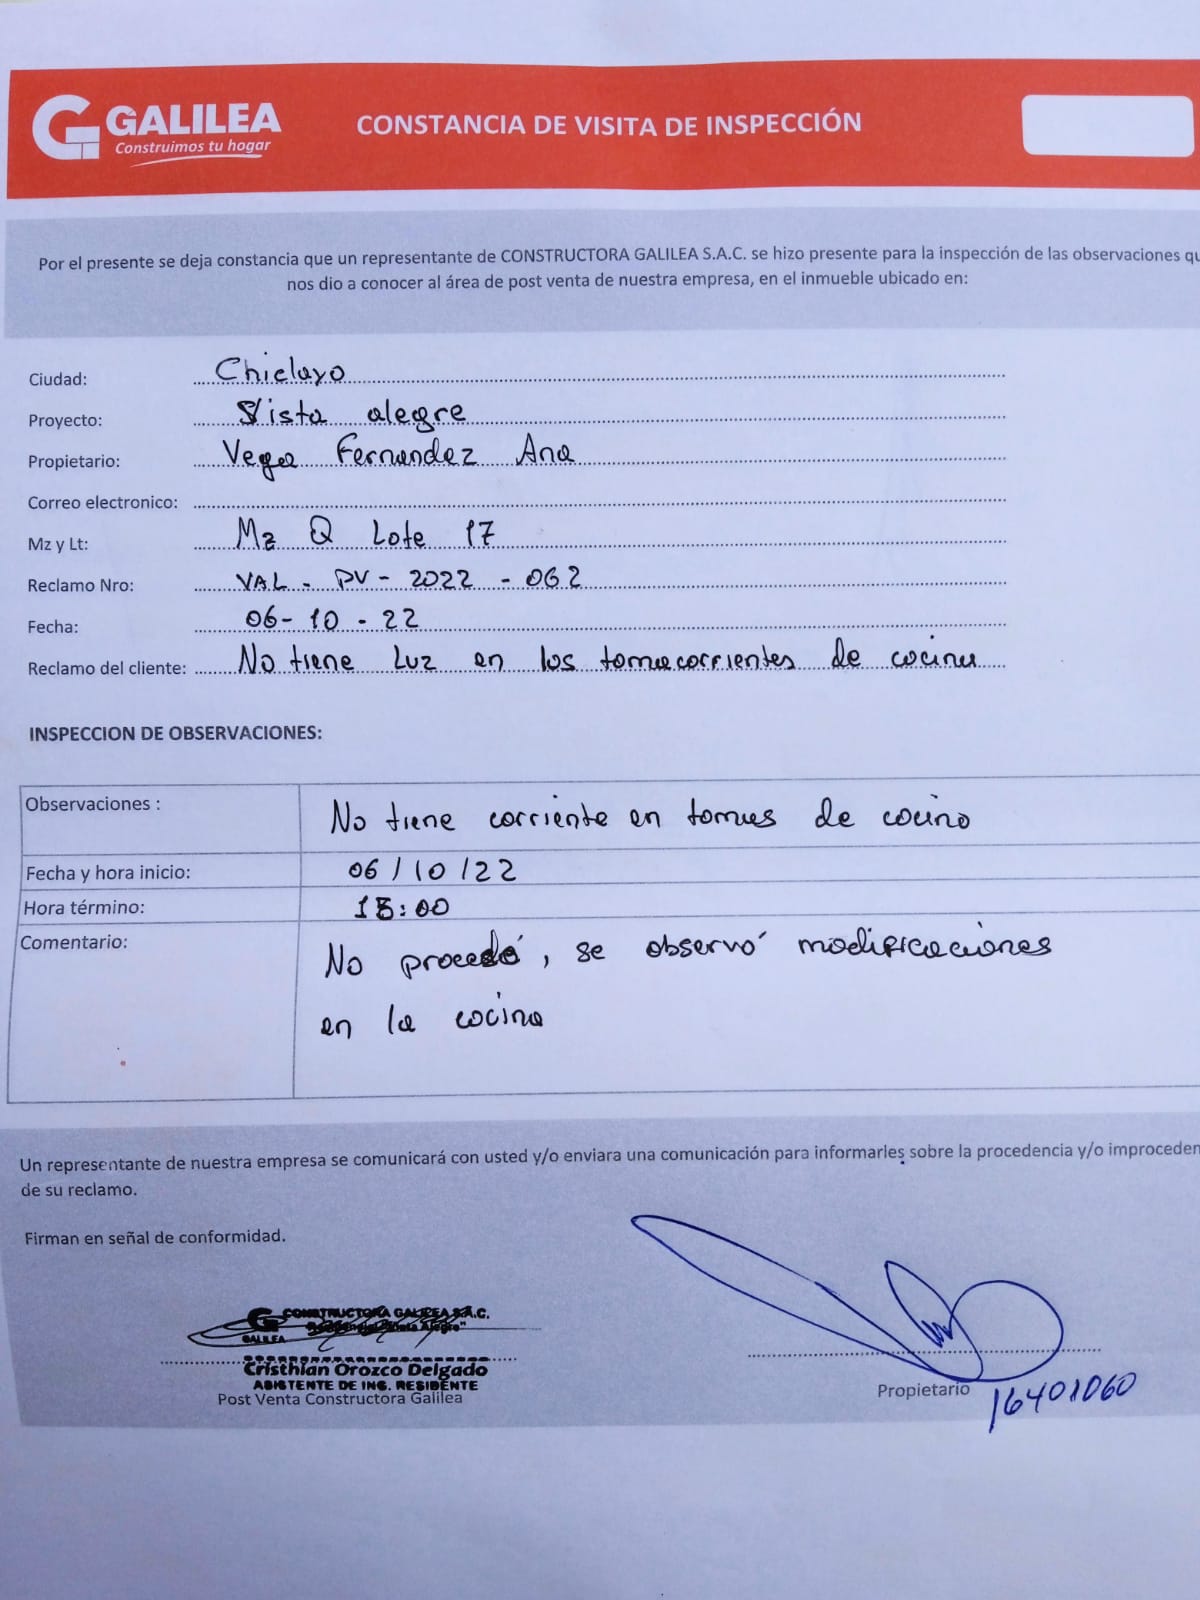 GALILEA
Construimos tu hogar
CONSTANCIA DE VISITA DE INSPECCIÓN
Por el presente se deja constancia que un representante de CONSTRUCTORA GALILEA S.A.C. se hizo presente para la inspección de las observaciones qu
nos dio a conocer al área de post venta de nuestra empresa, en el inmueble ubicado en:
Ciudad: Chiclayo
Proyecto: Vista alegre
Propietario: Vega Fernandez Ana
Correo electronico:
Mz y Lt: Mz Q Lote 17
Reclamo Nro: VAL - PV - 2022 - 062
Fecha: 06 - 10 - 22
Reclamo del cliente: No tiene Luz en los tomacorrientes de cocina
INSPECCION DE OBSERVACIONES:
Observaciones : No tiene corriente en tomas de cocina
Fecha y hora inicio: 06 / 10 / 22
Hora término: :00
Comentario: No procede, se observó modificaciones
en la cocina
Un representante de nuestra empresa se comunicará con usted y/o enviara una comunicación para informarles sobre la procedencia y/o improceden
de su reclamo.
Firman en señal de conformidad.
CONSTRUCTORA GALILEA S.A.C.
GALILEA
Cristhian Orozco Delgado
ASISTENTE DE ING. RESIDENTE
Post Venta Constructora Galilea
Propietario
16401060